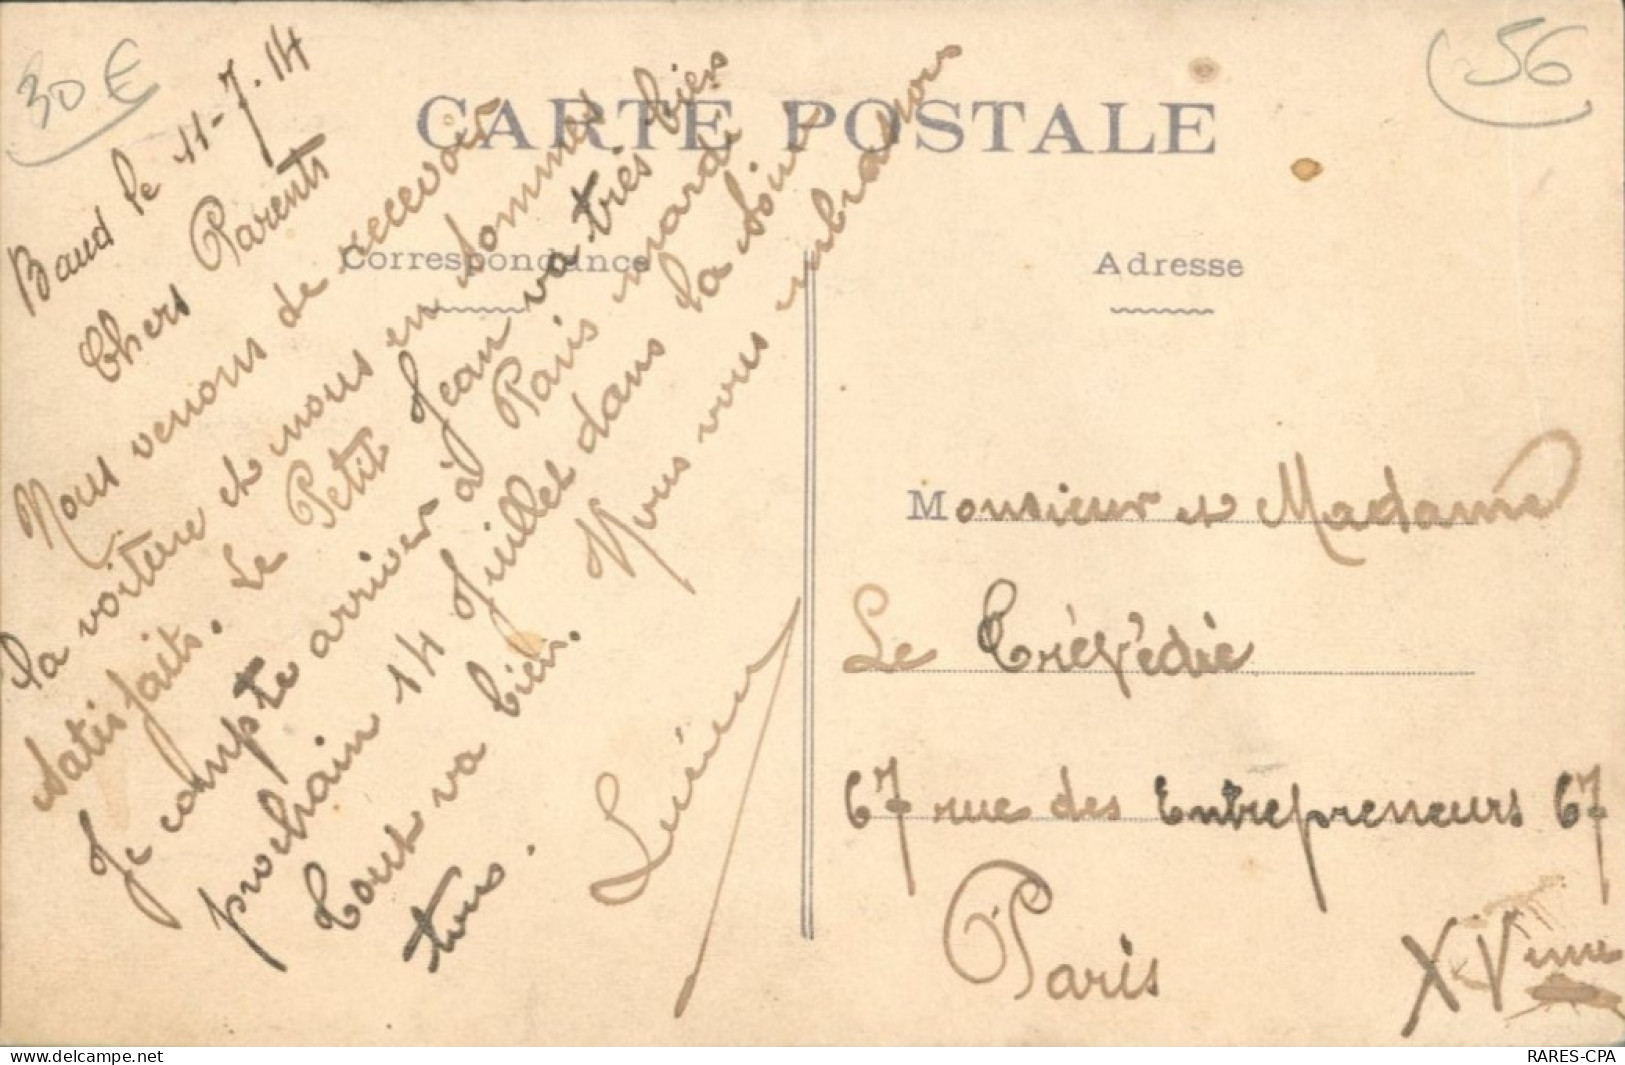 30 €
56
CARTE POSTALE
Correspondance
Adresse
Baud le 11-7.14
Chers Parents
Nous venons de recevoir
la voiture et nous en sommes
satisfaits. Le Petit Jean va très bien
Je compte arriver à Paris mardi
prochain 14 Juillet dans la soirée
Tout va bien. Nous vous embrassons
tous.
Lucien
Monsieur et Madame
Le Trévédic
67 rue des Entrepreneurs 67
Paris XVeme
delcampe.net
RARES-CPA